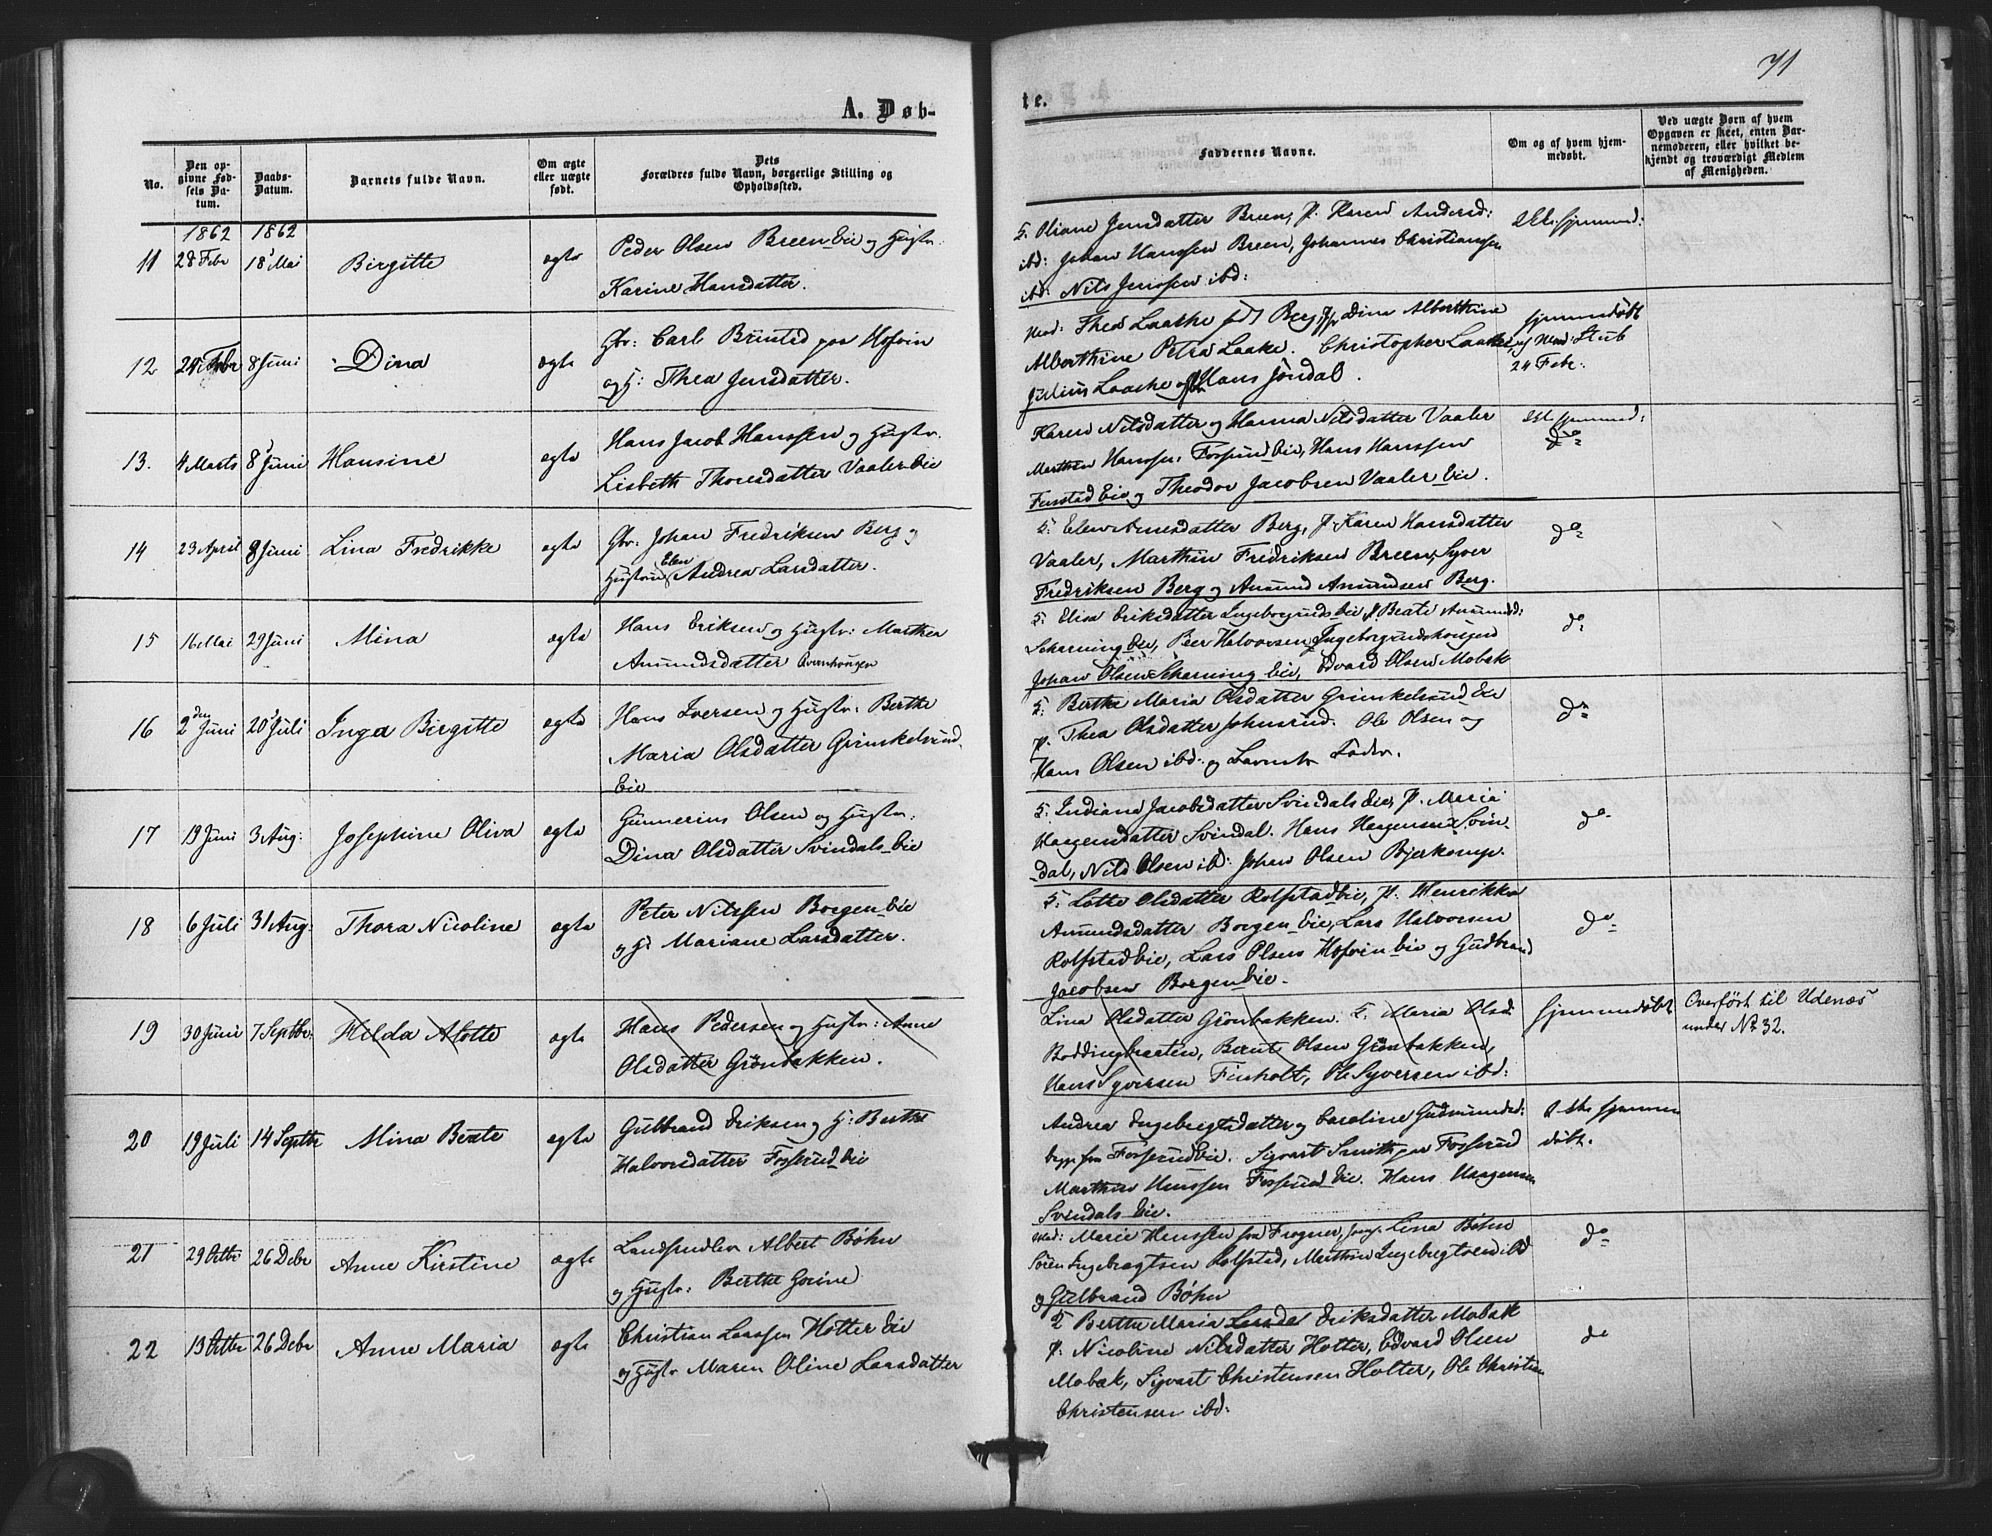 71
A. Døb-
te.
No.
Den opgivne Fødsels Datum.
Daabs-Datum.
Barnets fulde Navn.
Om ægte eller uægte født.
Dets Forældres fulde Navn, borgerlige Stilling og Opholdssted.
Faddernes Navne.
Om og af hvem hjemmedøbt.
Ved uægte Børn af hvem Opgaven er skeet, enten Barnemoderen, eller hvilket bekjendt og troværdigt Medlem af Menigheden.
1862 1862
11 28 Febr 18 Mai Birgitte ægte
Peder Olsen Breen Eie og Hustr:
Karine Hansdatter.
Oliane Jensdatter Breen, P. Karen Andersd:
ibd: Johan Hanssen Breen, Johannes Christianssen
ibd: Nils Jenssen ibd:
12 Febr 8 Juni Dina ægte
Gbr: Carl paa Hofvin
og H: Thea Jensdatter.
Thea Laake Berg, Dina Alberthine
Alberthine Petra Laake. Christopher Laake,
Julius Laake og Hans Jöndal.
hjemmedöbt
af Stub
24 Febr:
13. 4 Marts 8 Juni Hansine ægte
Hans Jacob Hanssen og Hustr.
Lisbeth Thoresdatter Vaaler Eie
Karen Nilsdatter og Hanna Nilsdatter Vaaler
Marthin Hanssen Eie, Hans Hanssen
Eie og Theodor Jacobsen Vaaler Eie.
do
14 23 April 8 Juni Lina Fredrikke ægte
Gbr: Johan Fredriksen Berg og
Hustru Elen Andrea Larsdatter.
Berg, P. Karen Hansdatter
Vaaler, Marthin Fredriksen Breen, Syver
Fredriksen Berg og Amund Amundsen Berg.
do
15 16 Mai 29 Juni Mina ægte
Hans Eriksen og Hustr: Marthea
Amundsdatter
Elisa Eriksdatter Eie, P. Beate Amundsd:
Eie, Peer Halvorsen
Johan Olsen Eie, Edvard Olsen Mobak
do
16 2den Juni 20 Juli Inga Birgitte ægte
Hans Iversen og Hustr: Berthe
Maria Olsdatter Grimkelsrud
Eie
Berthe Maria Olsdatter Grimkelsrud Eie
P. Thea Olsdatter Johnsrud. Ole Olsen og
Hans Olsen ibd: og Barnets Fader.
do
17 19 Juni 3 Aug: Josephine Oliva ægte
Gunnerius Olsen og Hustr:
Dina Olsdatter Svindals Eie
Indiana Jacobsdatter Svindals Eie, P. Maria
Haagensdatter Svindal. Hans Haagensen Svin-
dal, Nils Olsen ibd: Johan Olsen Bjerkomp.
do
18 6 Juli 31 Aug: Thora Nicoline ægte
Peter Nilssen Borgen Eie
og H: Mariane Larsdatter.
Lotte Olsdatter Rolfstadeie, P. Henrikke
Amundsdatter Borgen Eie, Lars Halvorsen
Rolfstadeie, Lars Olsen Hofvin Eie og Gudbrand
Jacobsen Borgen Eie.
do
19 30 Juni 7 Septbr: Hilda Alotte ægte
Hans Pedersen og Hustr: Anne
Olsdatter Grönbakken.
Lina Olsdatter Grönbakken. Maria Olsd:
Boddingbraaten, Bernt Olsen Grönbakken,
Hans Syversen Finholt, Ole Syversen ibd:
hjemmedöbt
Overfört til Udenæs
under No 32.
20 19 Juli 14 Septbr Mina Beate ægte
Gulbrand Eriksen og H: Berthe
Halvorsdatter Fosserud Eie
Andrea Ingebregtsdatter og Caroline Gudmundsd:
begge fra Fosserudeie. Sigvart Smith paa Fosserud
Marthin Hanssen Fosserud Eie. Hans Haagensen
Svindals Eie.
hjemme
döbt.
21 29 Octbr 26 Debr Anne Kirstine ægte
Landhandler Albert Bøhn
og Hustr: Berthe Gorine
Marie Henssen fra Frogner, Lina Bøhn
Sören Ingebregtsen Rolfstad, Marthin Ingebregtsen ibd
og Gulbrand Bøhn
do
22 13 Octbr 26 Debr Anne Maria ægte
Christian Larssen Holter Eie
og Hustr Maren Oline Larsdatter
Berthe Maria Eriksdatter Mobak
P. Nicoline Nilsdatter Holter, Edvard Olsen
Mobak, Sigvart Christensen Holter, Ole Christian
Christensen ibd:
do